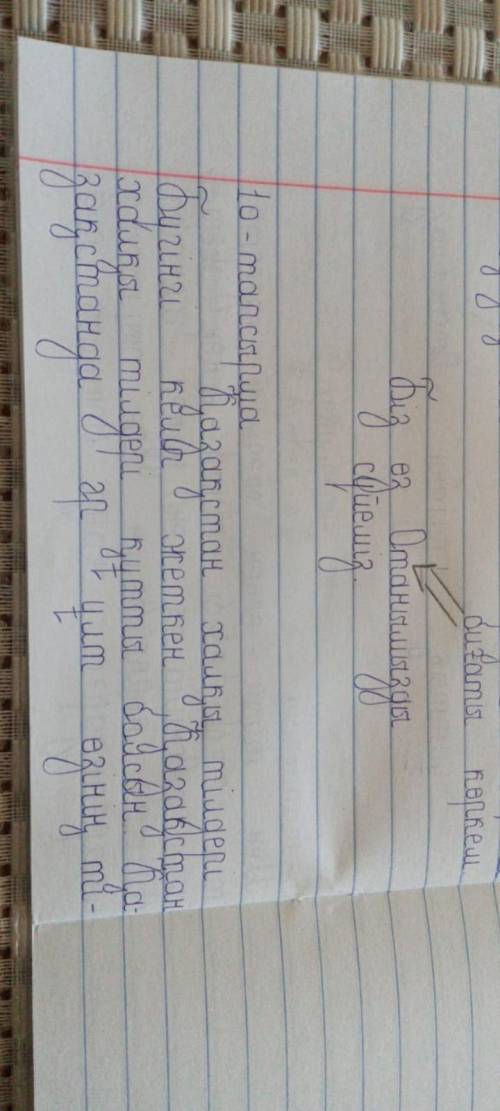 табиғаты көркем
Біз өз Отанымызды
сүйеміз.
10-тапсырма
Қазақстан халқы тілдері
Бүгінгі келіп жеткен Қазақстан
халқы тілдері күтты болсын. Қа-
зақстанда әр ұлт өзінің ті-